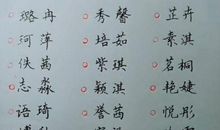 璐冉 秀馨 芷卉
河萍 培茹 素淇
佚茜 紫琪 茗桐
志淼 颖淇 艳婕
语琦 誉茜 悦彤